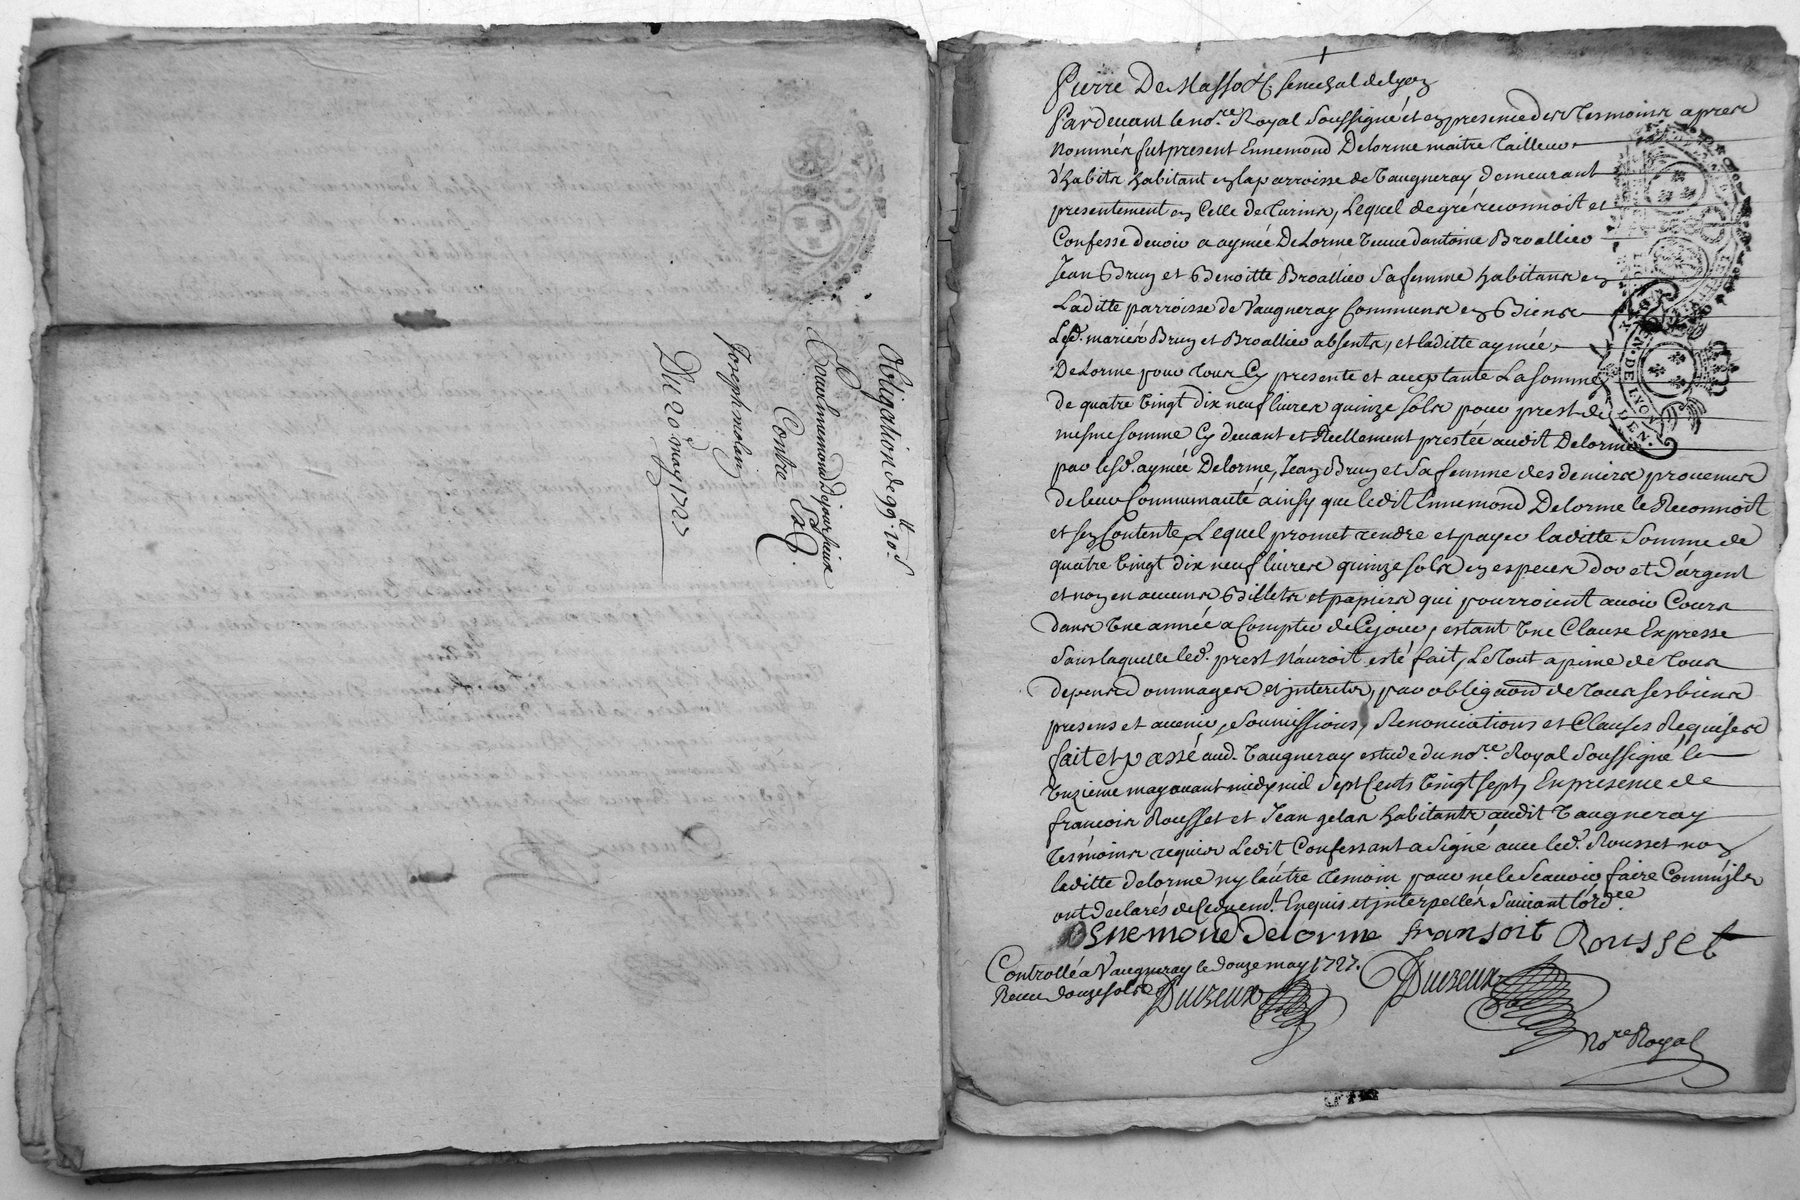 Obligation de 99.ll 10.s
Pour
Contre
Joseph molay
Du 20 may 1727
Pierre De Masso &c. senechal de lyon
Pardevant le no.re Royal soussigné et en presence des Tesmoins apres
Nommés fut present Ennemond Delorme maitre Tailleur
d'habits habitant en la parroisse de Vaugneray demeurant
presentement en Celle de Lequel de gré reconnoit et
Confesse devoir a aymée Delorme veuve d'antoine Broallier
Jean Brun et Benoitte Broallier sa femme habitans en
Laditte parroisse de Vaugneray Communs en Biens
Lesd. mariés Brun et Broallier absents, et laditte aymée
Delorme pour Tous Cy presente et acceptante La somme
de quatre vingt dix neuf livres quinze sols pour prest de
mesme somme Cy devant et Reellement prestée audit Delorme
par lesd. aymée Delorme, Jean Brun et sa femme des deniers provenus
de leur Communauté ainsy que ledit Ennemond Delorme le Reconnoit
et sen Contente, Lequel promet rendre et payer laditte somme de
quatre vingt dix neuf livres quinze sols en especes dor et d'argent
et non en aucuns Billets et papiers qui pourroient avoir Cours
dans une année a Compter de Cejour, estant une Clause Expresse
sans laquelle led. prest n'auroit esté fait, Le Tout a peine de Tous
depens dommages et interets, par obligaon de Tous ses biens
presens et avenir, soumissions, Renonciations et Clauses Requises
fait et passé aud. Vaugneray estude du no.re Royal soussigné le
unzieme may avant midy mil sept Cents vingt sept, En presence de
francois Rousset et Jean gelas habitants audit Vaugneray
Tesmoins requis Ledit Confessant a signé avec led. Rousset non
laditte delorme ny lautre Temoin pour ne le scavoir faire Comm'ils
ont declarés Enquis et interpellés suivant lord.ce
Enemond Delorme fransoit Rousset
Controllé a Vaugneray le douze may 1727.
Receu douze sols Duvzeux Duvzeux
No.re Royal